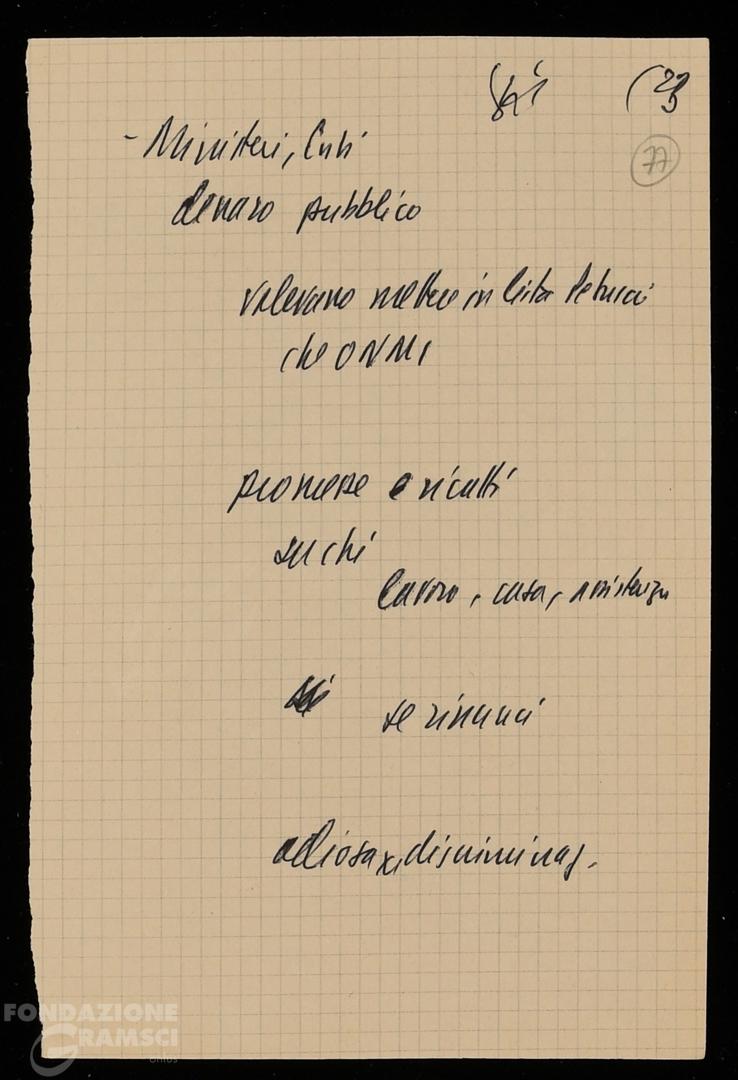 (23
77
- Ministeri, Enti
denaro pubblico
volevano mettere in lista Petrucci
che ONMI
promesse e ricatti
su chi
lavoro, casa, assistenza
se rinunci
odiosa x, discriminaz.
FONDAZIONE
GRAMSCI
onlus